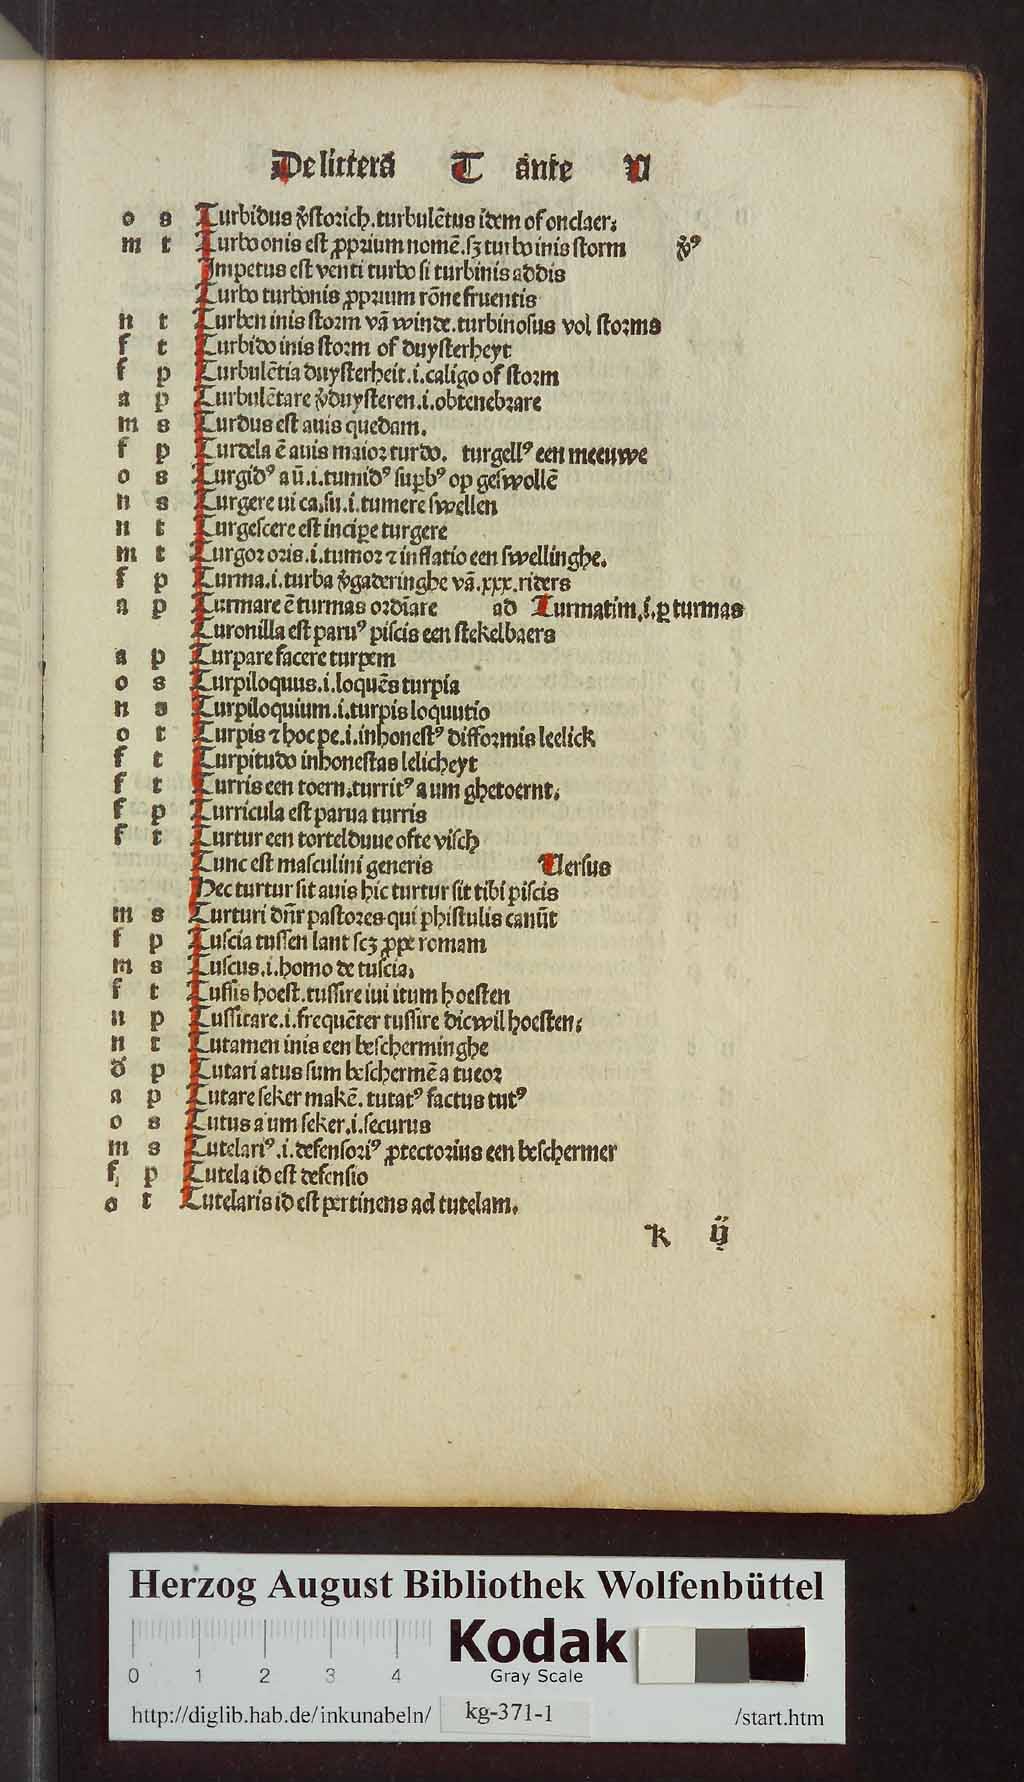 De litterā T ante V
o s Turbidus v̾storich. turbulētus idem of onclaer:
m t Turbo onis est ꝓprium nomē. sꝫ turbo inis storm v̾ꝰ
Impetus est venti turbo si turbinis addis
Turbo turbonis ꝓprium rōne fruentis
n t Turben inis storm vā winde. turbinosus vol storms
f t Turbido inis storm of duysterheyt
f p Turbulētia duysterheit .i. caligo of storm
a p Turbulētare v̾duysteren .i. obtenebrare
m s Turdus est auis quedam.
f p Turdela ē auis maior turdo. turgellꝰ een meeuwe
o s Turgidꝰ aū .i. tumidꝰ supbꝰ op geswollē
n s Turgere ui ca. su .i. tumere swellen
n t Turgescere est incipe turgere
m t Turgor oris .i. tumor ⁊ inflatio een swellinghe.
f p Turma .i. turba v̾gaderinghe vā .xxx. riders
a p Turmare ē turmas ordīare ad Turmatim .i. ꝑ turmas
Turonilla est paruꝰ piscis een stekelbaers
a p Turpare facere turpem
o s Turpiloquus .i. loquēs turpia
n s Turpiloquium .i. turpis loquutio
o t Turpis ⁊ hoc pe .i. inhonestꝰ difformis leelick
f t Turpitudo inhonestas lelicheyt
f t Turris een toern. turritꝰ a um ghetoernt:
f p Turricula est parua turris
f t Turtur een tortelduue ofte visch
Tunc est masculini generis Versus
Hec turtur sit auis hic turtur sit tibi piscis
m s Turturi dn̄r pastores qui phistulis canūt
f p Tuscia tussen lant scꝫ ꝓpe romam
m s Tuscus .i. homo de tuscia.
f t Tussis hoest. tussire iui itum hoesten
n p Tussitare .i. frequēter tussire dicwil hoesten:
n t Tutamen inis een bescherminghe
d̾ p Tutari atus sum beschermē a tueor
a p Tutare seker makē. tutatꝰ factus tutꝰ
o s Tutus a um seker .i. securus
m s Tutelariꝰ .i. defensoriꝰ ꝓtectorius een beschermer
f p Tutela id est defensio
o t Tutelaris id est pertinens ad tutelam.
k ij
Herzog August Bibliothek Wolfenbüttel
0 1 2 3 4
Kodak
Gray Scale
http://diglib.hab.de/inkunabeln/ kg-371-1 /start.htm